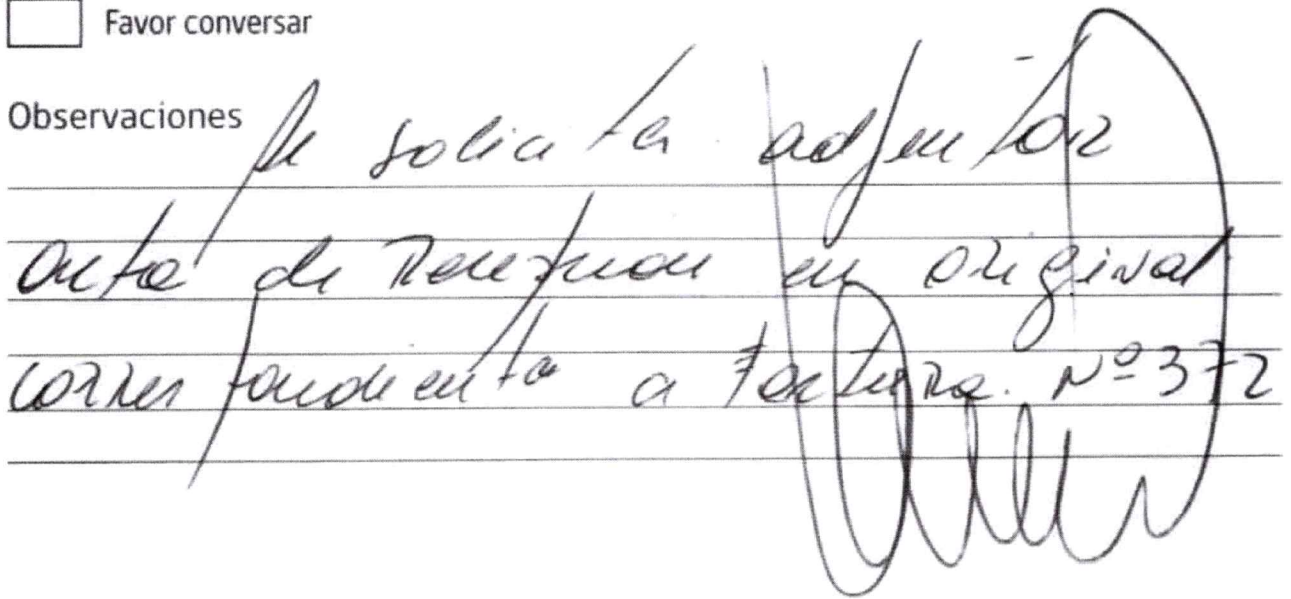 Favor conversar
Observaciones
Se solicita adjuntar
acta de Recepcion en original
correspondiente a Factura. Nº 372